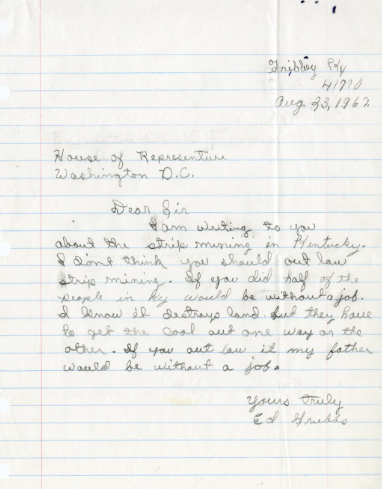 Ky
Aug 23, 1967.
House of Representive
Washington D.C.
Dear Sir
I am writing to you
about the strip mining in Kentucky.
I don't think you should out law
strip mining. If you did half of the
people in Ky would be without a job.
I know it destroys land but they have
to get the coal out one way or the
other. If you out law it my father
would be without a job.
Yours truly
Ed Grubbs